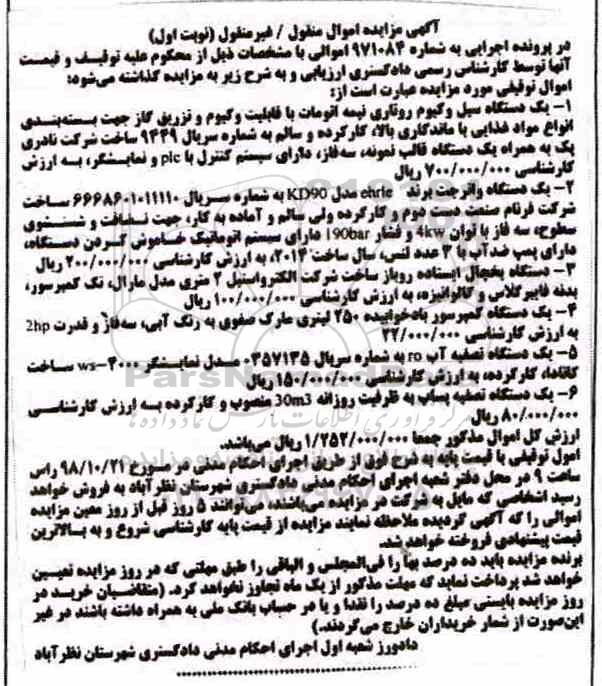 آگهی مزایده اموال منقول / غیرمنقول (نوبت اول)
در پرونده اجرایی به شماره ۹۷۱۰۸۴ اموالی با مشخصات ذیل از محکوم علیه توقیف و قیمت
آنها توسط کارشناس رسمی دادگستری ارزیابی و به شرح زیر به مزایده گذاشته می‌شود:
اموال توقیفی مورد مزایده عبارت است از:
۱- یک دستگاه سیل وکیوم روتاری نیمه اتومات با قابلیت وکیوم و تزریق گاز جهت بسته‌بندی
انواع مواد غذایی با ماندگاری بالا، کارکرده و سالم به شماره سریال ۹۴۴۹ ساخت شرکت نادری
پک به همراه یک دستگاه قالب نمونه، سه‌فاز، دارای سیستم کنترل با plc و نمایشگر، به ارزش
کارشناسی ۷۰۰/۰۰۰/۰۰۰ ریال
۲- یک دستگاه واترجت برند ehrle مدل KD90 به شماره سریال ۶۶۶۸۶۰۱۰۱۱۱۱۰ ساخت
شرکت فرنام صنعت دست دوم و کارکرده ولی سالم و آماده به کار، جهت نظافت و شستشوی
سطوح، سه فاز با توان 4kw و فشار 190bar دارای سیستم اتوماتیک خاموش کردن دستگاه،
دارای پمپ ضدآب با ۳ عدد لنس، سال ساخت ۲۰۱۴، به ارزش کارشناسی ۲۰۰/۰۰۰/۰۰۰ ریال
۳- دستگاه یخچال ایستاده روباز ساخت شرکت الکترواستیل ۲ متری مدل مارال، تک کمپرسور،
بدنه فایبرگلاس و گالوانیزه، به ارزش کارشناسی ۱۰۰/۰۰۰/۰۰۰ ریال
۴- یک دستگاه کمپرسور بادخوابیده ۲۵۰ لیتری مارک صفوی به رنگ آبی، سه‌فاز و قدرت 2hp
به ارزش کارشناسی ۲۲/۰۰۰/۰۰۰
۵- یک دستگاه تصفیه آب ro به شماره سریال ۰۳۵۷۱۳۵ مدل نمایشگر ws-۴۰۰۰ ساخت
کانادا، کارکرده، به ارزش کارشناسی ۱۵۰/۰۰۰/۰۰۰ ریال
۶- یک دستگاه تصفیه پساب به ظرفیت روزانه 30m3 منصوب و کارکرده به ارزش کارشناسی
۸۰/۰۰۰/۰۰۰ ریال
ارزش کل اموال مذکور جمعا ۱/۲۵۲/۰۰۰/۰۰۰ ریال می‌باشد.
امول توقیفی با قیمت پایه به شرح فوق از طریق اجرای احکام مدنی در مورخ ۹۸/۱۰/۲۱ راس
ساعت ۹ در محل دفتر شعبه اجرای احکام مدنی دادگستری شهرستان نظرآباد به فروش خواهد
رسید اشخاصی که مایل به شرکت در مزایده می‌باشند، می‌توانند ۵ روز قبل از روز معین مزایده
اموالی را که آگهی گردیده ملاحظه نمایند مزایده از قیمت پایه کارشناسی شروع و به بالاترین
قیمت پیشنهادی فروخته خواهد شد.
برنده مزایده باید ده درصد بها را فی‌المجلس و الباقی را طبق مهلتی که در روز مزایده تعیین
خواهد شد پرداخت نماید که مهلت مذکور از یک ماه تجاوز نخواهد کرد. (متقاضیان خرید در
روز مزایده بایستی مبلغ ده درصد را نقدا و یا در حساب بانک ملی به همراه داشته باشند در غیر
این‌صورت از شمار خریداران خارج می‌گردند.)
دادورز شعبه اول اجرای احکام مدنی دادگستری شهرستان نظرآباد